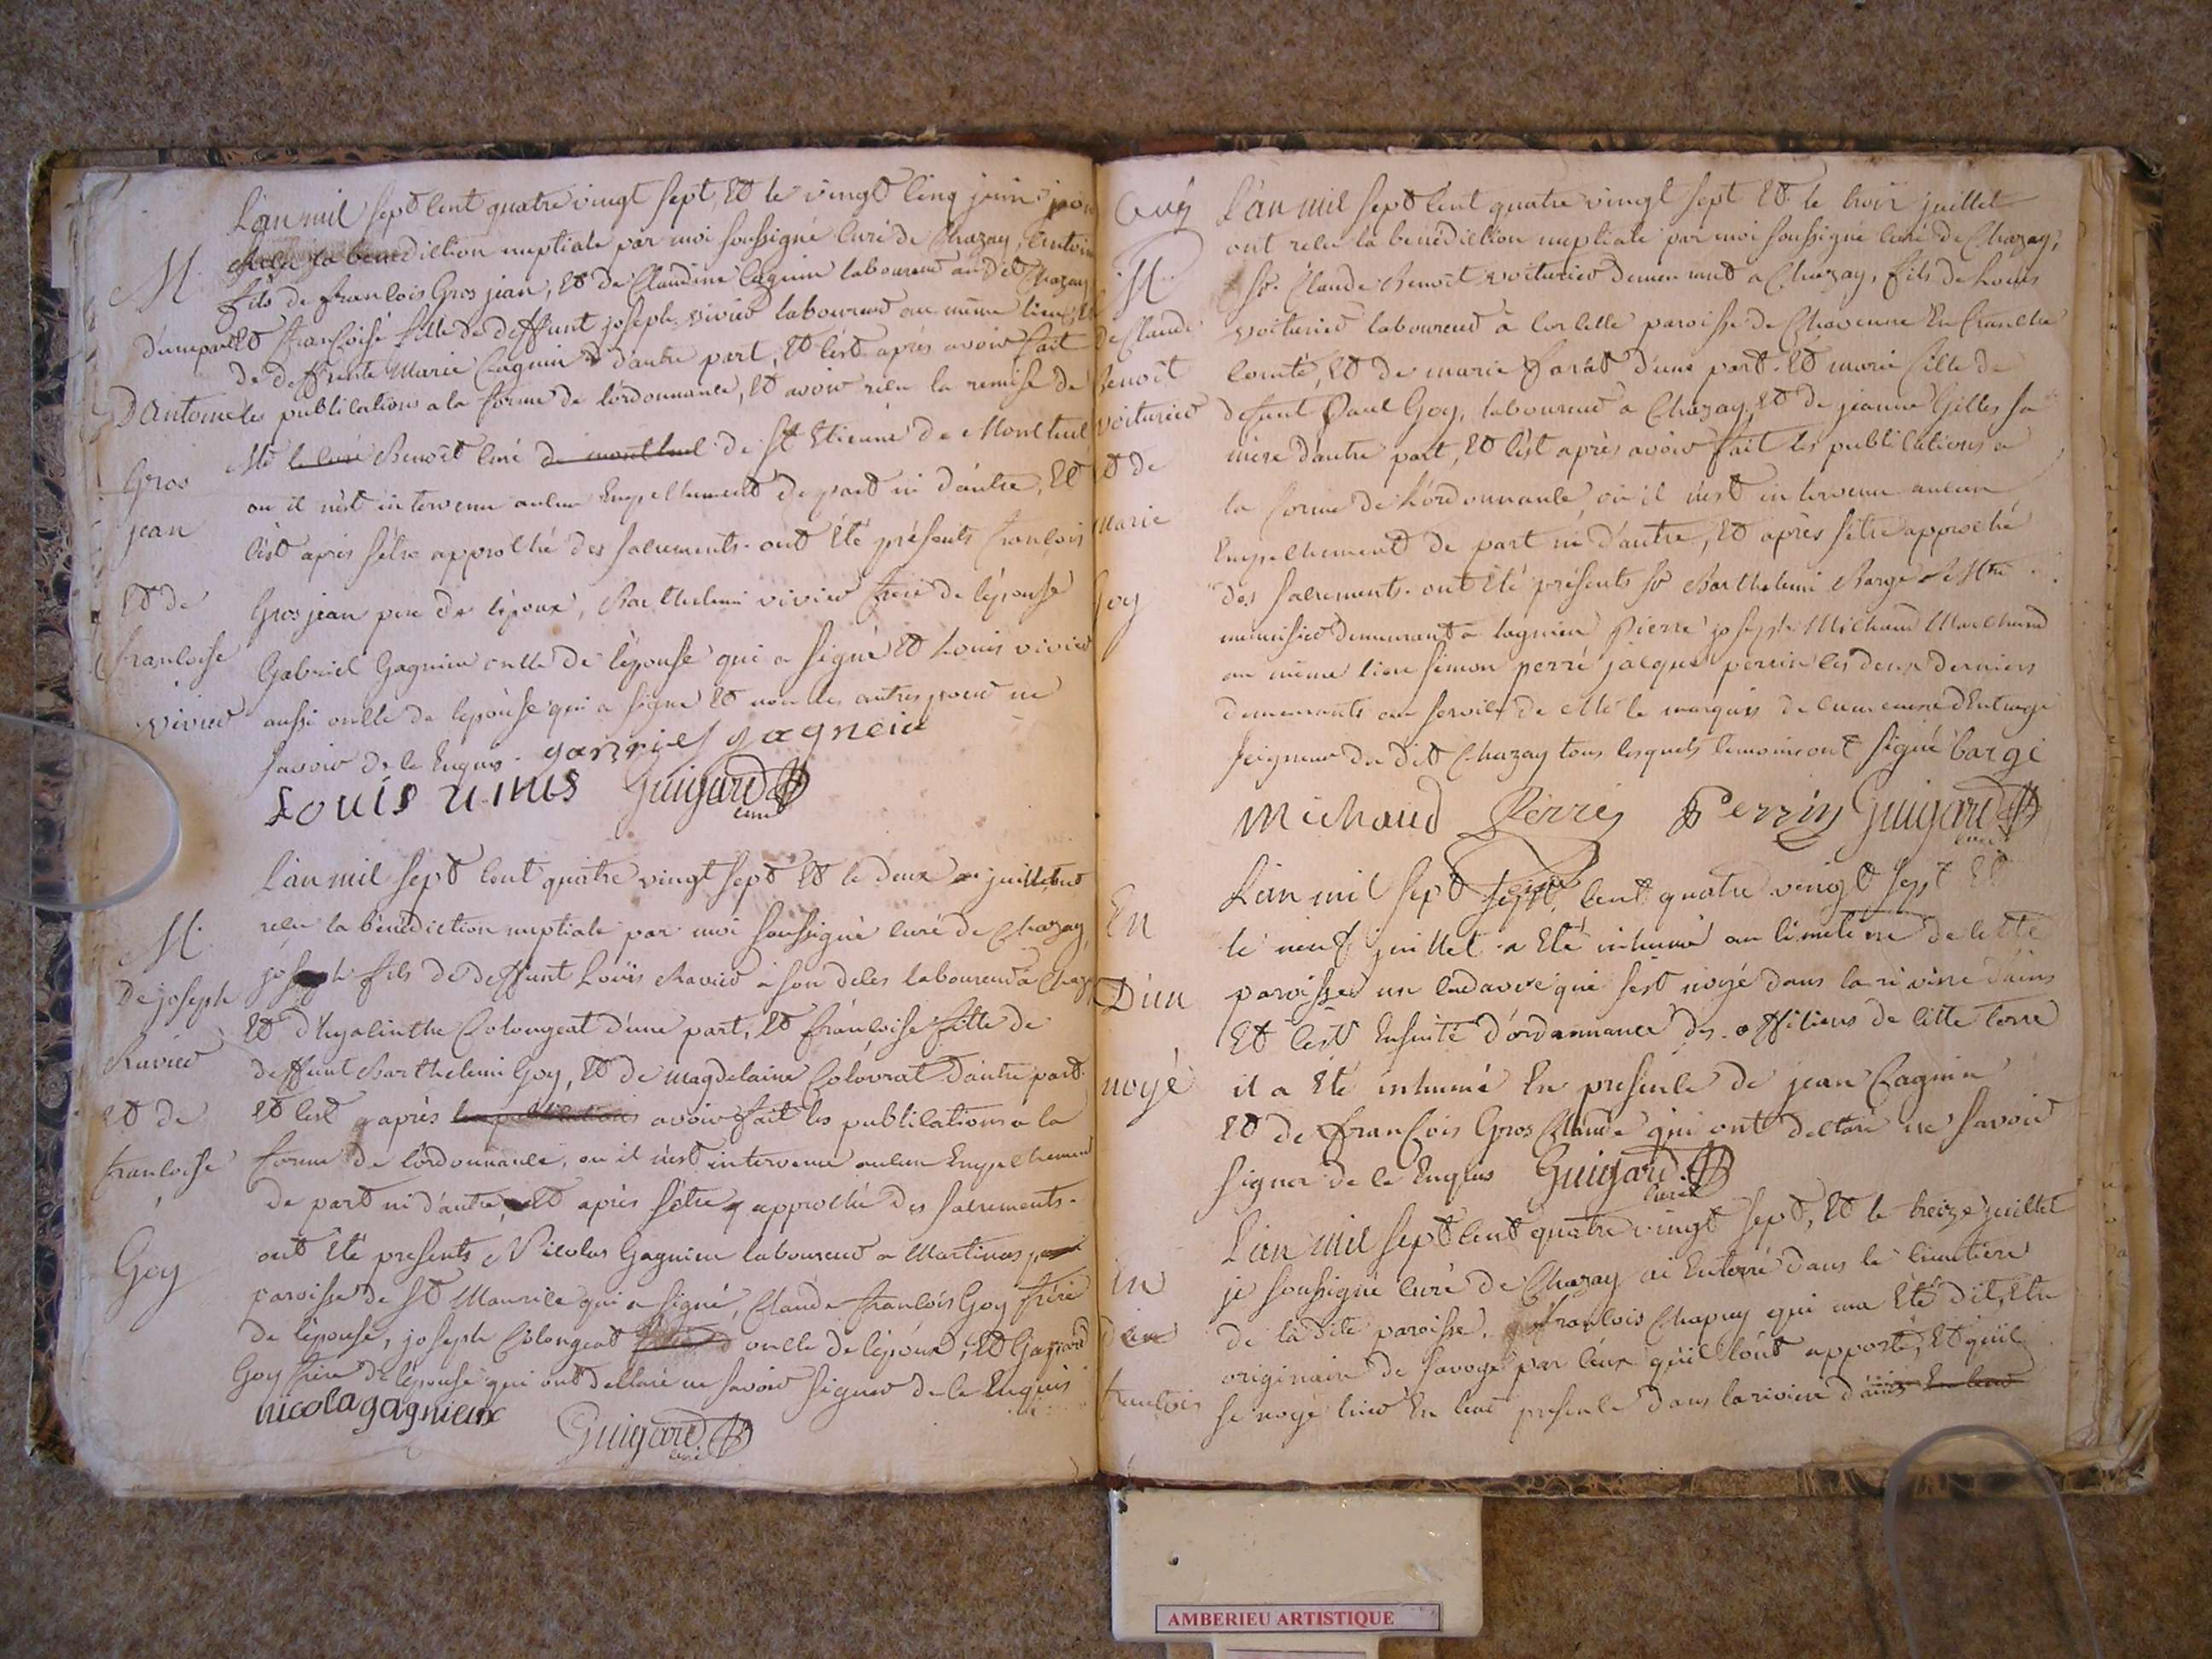 L'an mil sept cent quatre vingt sept, et le vingt cinq juin
reçu la bénédiction nuptiale par moi soussigné curé de Chazay, Antoine
M.
fils de francois Gros jean, et de Claudine Cagnin laboureur audit Chazay
d'une part et françoise fille de deffunt joseph vivier laboureur au même lieu, et
de deffunte Marie Cagnin d'autre part, et c'est après avoir fait
D'antoine
les publications a la forme de l'ordonnance, et avoir reçu la remise de
Gros
Mr le curé Benoît curé de montluel de St Etienne de Montluel
jean
ou il n'est intervenu aucun Empechement de part ni d'autre, et
c'est après s'etre approché des sacrements. ont été présents françois
et de
Gros jean pere de l'époux, Barthelemi vivier frere de l'épouse
francoise
Gabriel Gagnieu oncle de l'épouse qui a signé et Louis vivier
vivier
aussi oncle de l'épouse qui a signé et non les autres pour ne
savoir de ce Enquis. gabriel gagneiu
Louis Guigard
curé
L'an mil sept cent quatre vingt sept et le deux juillet, ont
reçu la bénédiction nuptiale par moi soussigné curé de Chazay,
M.
De joseph
joseph fils de deffunt Louis Ravier à son deces laboureur à Chazay
et d'hyacinthe Colongeat d'une part, et françoise fille de
Ravier
deffunt Barthelemi Goy, et de magdelaine Colovrat d'autre part
et de
et c'est après les publications avoir fait les publications a la
francoise
forme de l'ordonnance, ou il n'est intervenu aucun Empechement
de part ni d'autre, et après s'etre approché des sacrements.
Goy
ont été presents Nicolas Gagnieu laboureur a Martinas
paroisse de St Maurice qui a signé, Claude francois Goy frere
de l'épouse, joseph Colongeat oncle de l'époux, et Gaspard
Goy frere de l'épouse qui ont declaré ne savoir signer de ce Enquis
nicola gagnieux
Guigard
curé
L'an mil sept cent quatre vingt sept et le trois juillet
ont reçu la bénédiction nuptiale par moi soussigné curé de Chazay,
M
Sr. Claude Benoît voiturier demeurant a Chazay, fils de Louis
de Claude
voiturier laboureur à Corcelle paroisse de Chavenne En franche
Benoît
comté, et de marie d'une part. et marie fille de
voiturier
defunt Paul Goy, laboureur a Chazay, et de jeanne Gilles sa
et de
mere d'autre part, et c'est après avoir fait les publications a
la forme de l'ordonnance, où il n'est intervenu aucun
marie
Empechement de part ni d'autre, et après s'etre approché
Goy
des sacrements. ont été présents Sr Barthelemi Barge
menuisier demeurant a lagnieu Pierre joseph Michaud Marchand
au même lieu simon perré jacque perrin les deux derniers
demeurants au service de Mr le marquis de d'Entrage
seigneur du dit Chazay tous lesquels temoins ont signé barge
Michaud Perré Perrin Guigard
curé
L'an mil sept sept cent quatre vingt sept et
En
le neuf juillet a été inhumé au cimetiere de cette
D'un
paroisse un cadavre qui s'est noyé dans la riviere d'ains
Et c'est Ensuite d'ordonnance des officiers de cette terre
noyé
il a été inhumé En presence de jean Cagnin
et de francois Gros Claude qui ont declaré ne savoir
signer de ce Enquis Guigard
curé
L'an mil sept cent quatre vingt sept, et le treize juillet
je soussigné curé de Chazay ai Enterré dans le cimetiere
En
de la dite paroisse. francois Chapuy qui m'a été dit, etre
originaire de savoye par ceux qui l'ont apporté, et qu'il
francois
se noye hier En leur presence dans la riviere d'ains En leur
AMBERIEU ARTISTIQUE